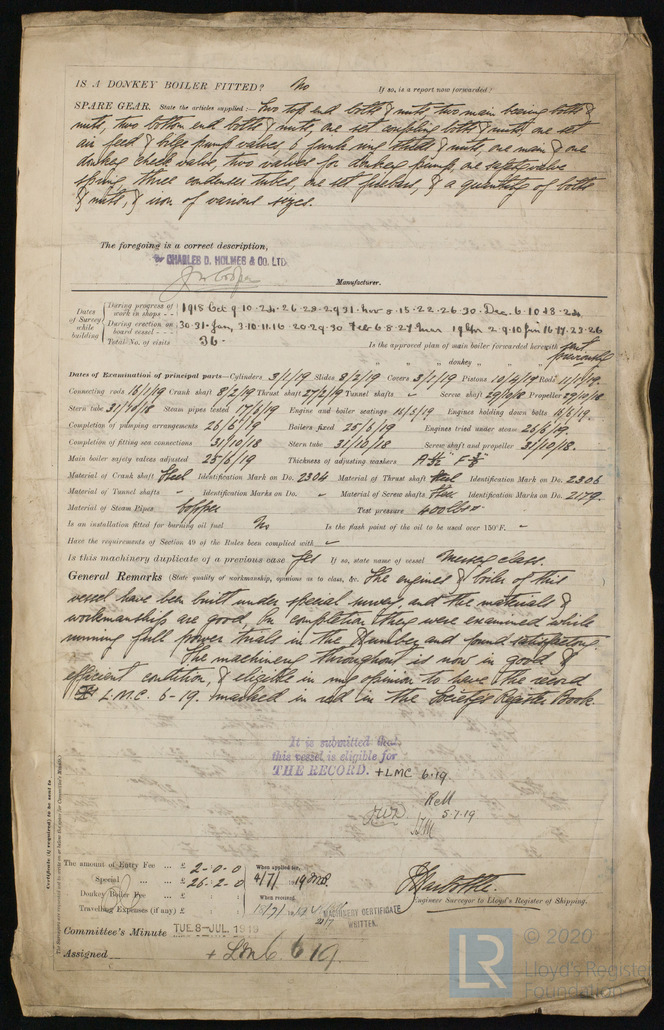 IS A DONKEY BOILER FITTED? No If so, is a report now forwarded?
SPARE GEAR. State the articles supplied:— Two top end bolts & nuts two main bearing bolts &
nuts, two bottom end bolts & nuts, one set coupling bolts & nuts one set
air feed & bilge pump valves 6 junk ring studs & nuts, one main & one
donkey check valve, two valves for donkey pump, one safety valve
spring, three condenser tubes, one set firebars, & a quantity of bolts
& nuts, & iron of various sizes.
The foregoing is a correct description,
CHARLES D. HOLMES & CO. LTD.
Manufacturer.
Dates of Survey while building
During progress of work in shops - - 1918 Oct 9.10.24.26.28.29.31. Nov 8.15.22.26.30. Dec. 6.10.18.24
During erection on board vessel - - - 30.31. Jan, 3.10.11.16.20.29.30 Feb 6.8.27 Mar 19 Apr 2.9.10 Jun 16.17.23.26
Total No. of visits 36 Is the approved plan of main boiler forwarded herewith sent previously
" " " donkey " "
Dates of Examination of principal parts—Cylinders 3/1/19 Slides 8/2/19 Covers 3/1/19 Pistons 10/4/19 Rods 11/1/19.
Connecting rods 16/1/19 Crank shaft 8/2/19 Thrust shaft 27/2/19 Tunnel shafts - Screw shaft 29/10/18 Propeller 29/10/18
Stern tube 31/10/18 Steam pipes tested 17/6/19 Engine and boiler seatings 16/6/19. Engines holding down bolts 16/6/19.
Completion of pumping arrangements 26/6/19 Boilers fixed 25/6/19 Engines tried under steam 26/6/19.
Completion of fitting sea connections 31/10/18 Stern tube 31/10/18 Screw shaft and propeller 31/10/18.
Main boiler safety valves adjusted 25/6/19 Thickness of adjusting washers
Material of Crank shaft Steel Identification Mark on Do. 2304 Material of Thrust shaft Steel Identification Mark on Do. 2306
Material of Tunnel shafts - Identification Marks on Do. - Material of Screw shafts Steel Identification Marks on Do. 2179.
Material of Steam Pipes Copper Test pressure 400 lbs
Is an installation fitted for burning oil fuel No Is the flash point of the oil to be used over 150°F. -
Have the requirements of Section 49 of the Rules been complied with -
Is this machinery duplicate of a previous case Yes If so, state name of vessel Mersey class.
General Remarks (State quality of workmanship, opinions as to class, &c. The engines & boiler of this
vessel have been built under special survey and the materials &
workmanship are good, On completion they were examined while
running full power trials in the Humber and found satisfactory.
The machinery throughout is now in good &
efficient condition, & eligible in my opinion to have the record
+ L.M.C. 6-19. marked in red in the Society's Register Book.
It is submitted that
this vessel is eligible for
THE RECORD. +LMC 6.19.
5.7.19
Certificate (if required) to be sent to
The amount of Entry Fee ... £ 2-0-0 When applied for,
Special ... ... £ 26-2-0 4/7/1919
Donkey Boiler Fee ... £ When received,
Travelling Expenses (if any) £
MACHINERY CERTIFICATE
WRITTEN.
Engineer Surveyor to Lloyd's Register of Shipping.
Committee's Minute TUE 8-JUL 1919
Assigned + LMC 6 19.
LR © 2020
Lloyd's Register
Foundation